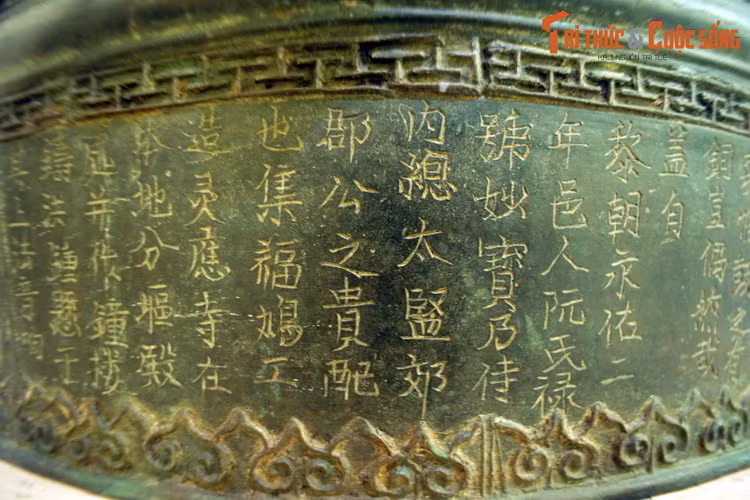 TRI THỨC & CUỘC SỐNG
之有
銅豈偶然哉
蓋自
黎朝永佑二
年邑人阮氏禄
號妙寶乃侍
内總太監郊
郡公之貴配
也集福鳩工
造灵應寺在
本地分塸殿
并作鐘楼
鐘懸于
一法音